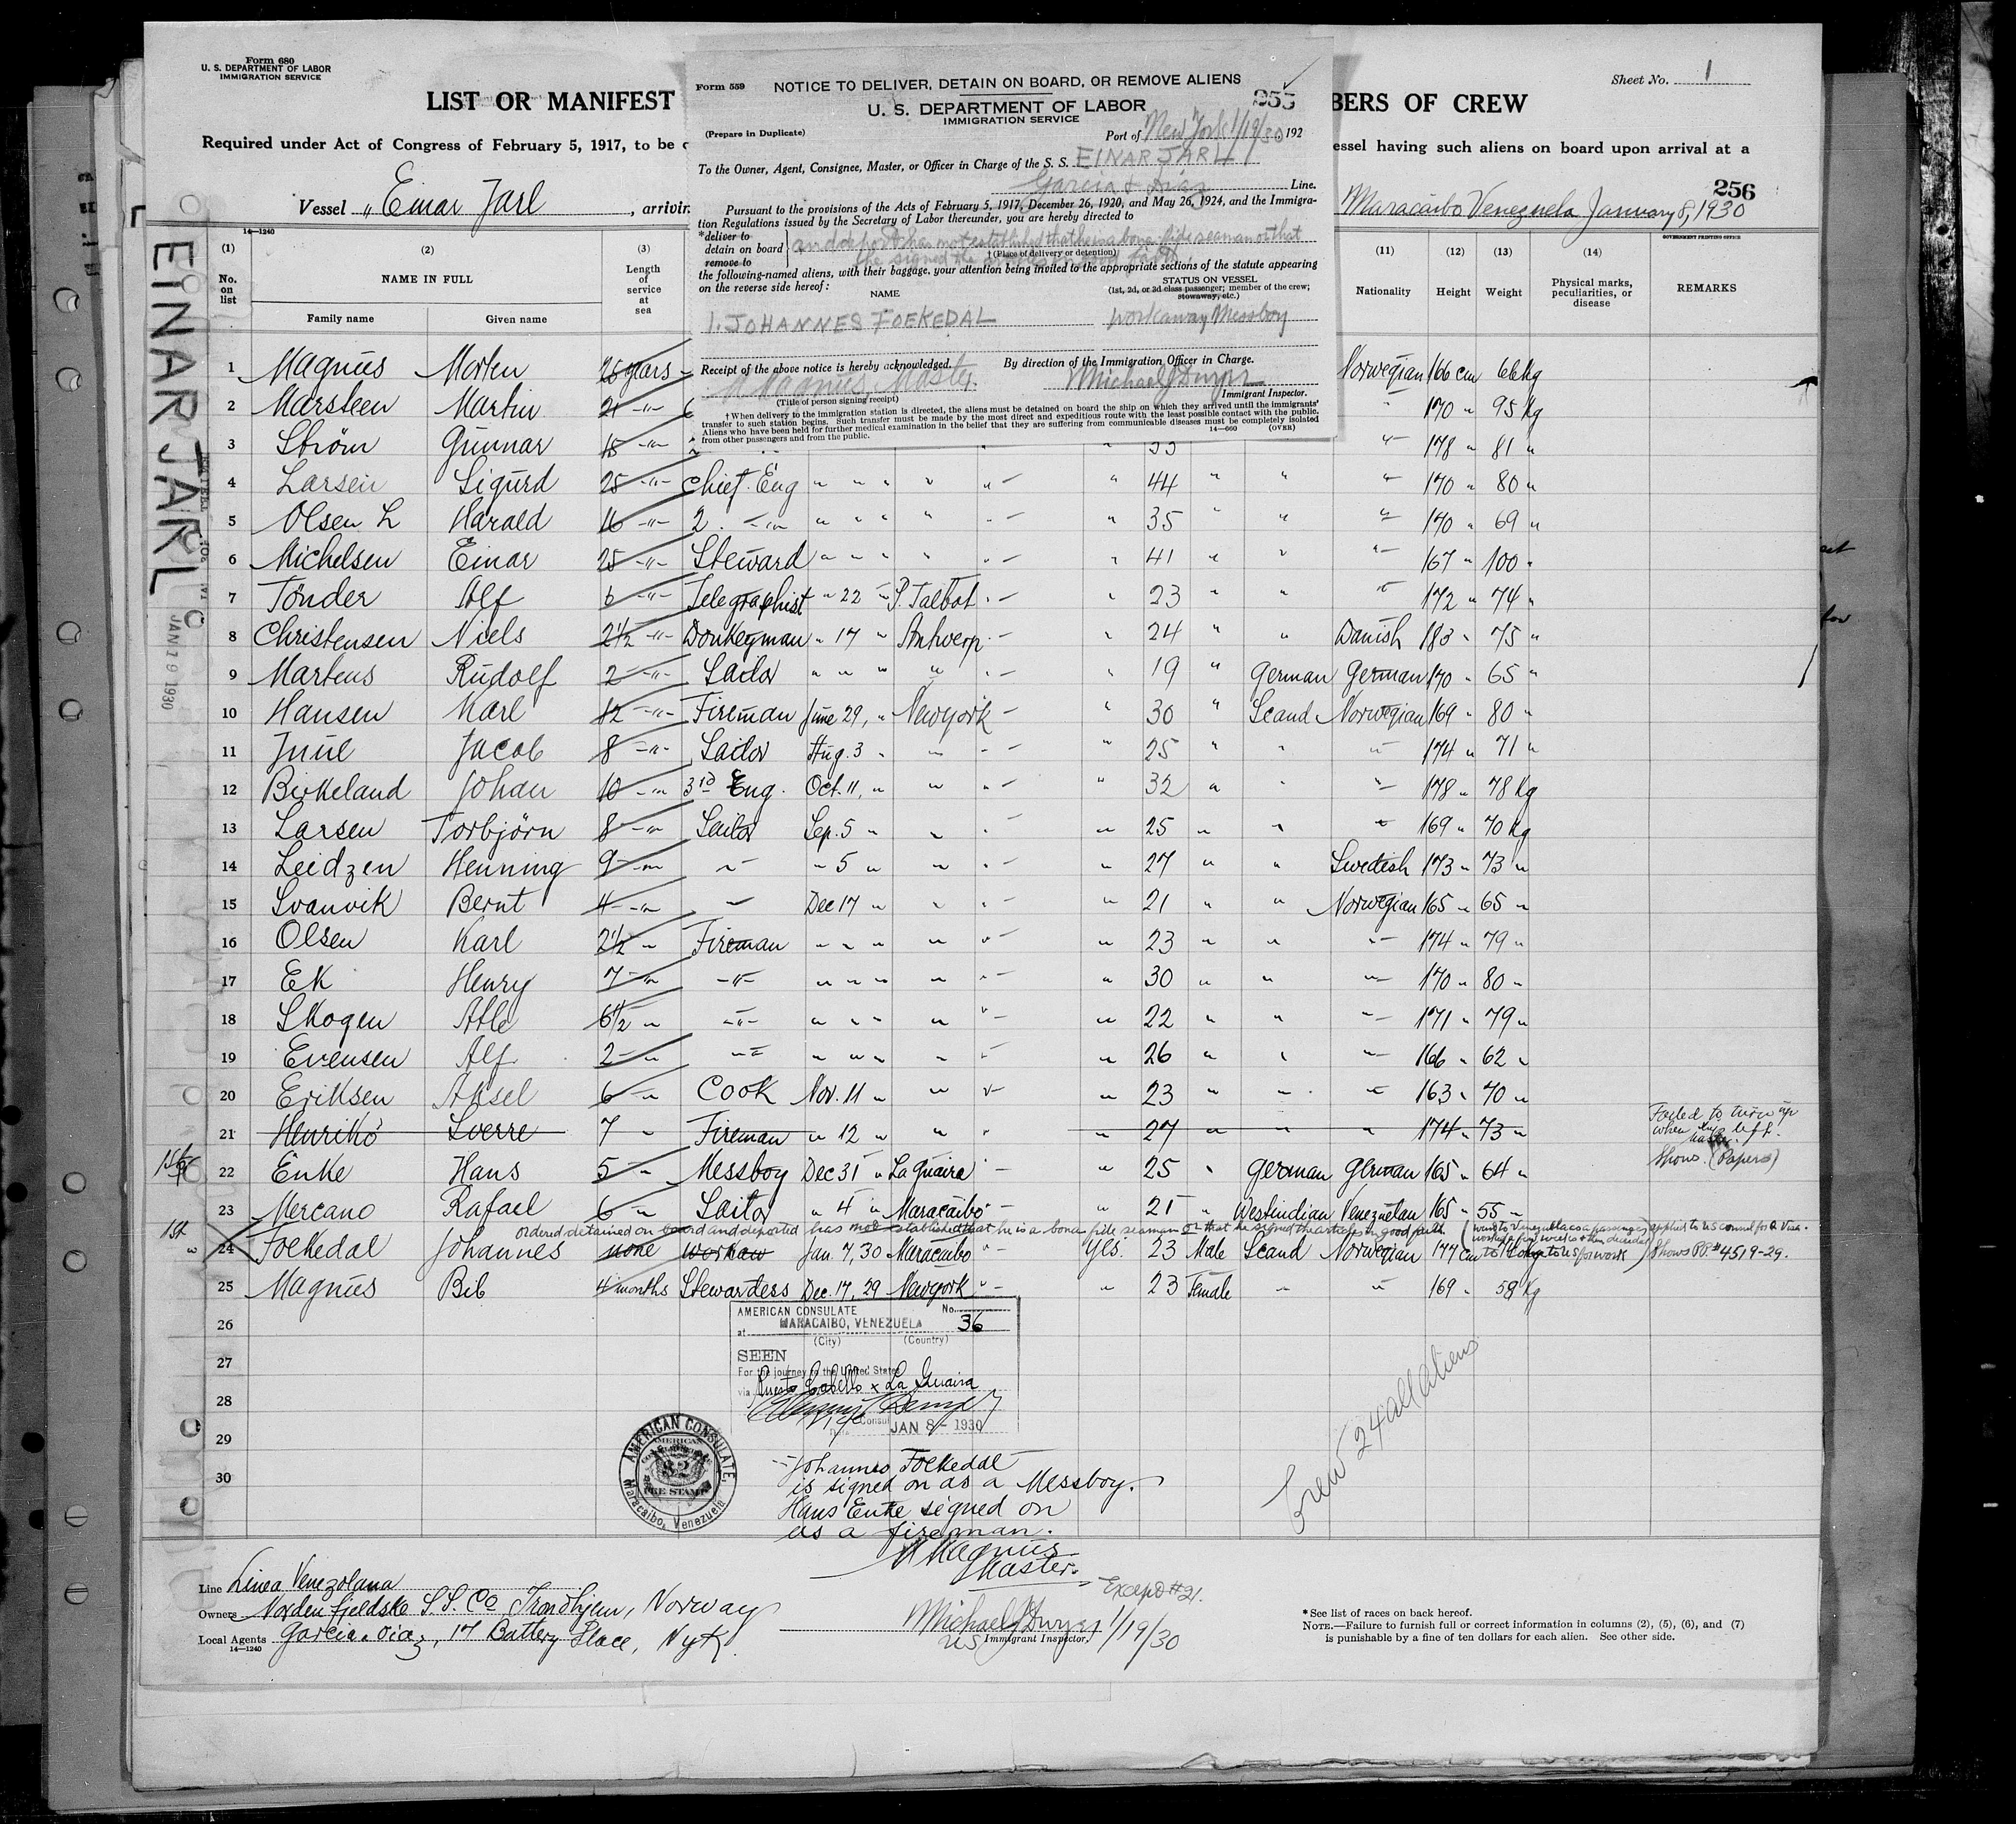 Form 680
U. S. DEPARTMENT OF LABOR
IMMIGRATION SERVICE
Sheet No. 1
LIST OR MANIFEST
BERS OF CREW
Required under Act of Congress of February 5, 1917, to be
essel having such aliens on board upon arrival at a
256
Vessel " Einar Jarl, arrivin
Maracaibo Venezuela January 8, 1930
Form 559
NOTICE TO DELIVER, DETAIN ON BOARD, OR REMOVE ALIENS
255
U. S. DEPARTMENT OF LABOR
IMMIGRATION SERVICE
(Prepare in Duplicate)
Port of New York 1/19/30, 192
To the Owner, Agent, Consignee, Master, or Officer in Charge of the S. S. EINAR JARL
Garcia & Diaz Line.
Pursuant to the provisions of the Acts of February 5, 1917, December 26, 1920, and May 26, 1924, and the Immigra-
tion Regulations issued by the Secretary of Labor thereunder, you are hereby directed to
*deliver to
detain on board and deport has not established that he is a bona fide seaman or that
†(Place of delivery or detention)
remove to he signed the articles in good faith
the following-named aliens, with their baggage, your attention being invited to the appropriate sections of the statute appearing
on the reverse side hereof:
NAME
STATUS ON VESSEL
(1st, 2d, or 3d class passenger; member of the crew;
stowaway, etc.)
1. JOHANNES FOEKEDAL workaway Messboy
Receipt of the above notice is hereby acknowledged. By direction of the Immigration Officer in Charge.
M Magnus, Master. Michael J Dwyer
(Title of person signing receipt) Immigrant Inspector.
†When delivery to the immigration station is directed, the aliens must be detained on board the ship on which they arrived until the immigrants'
transfer to such station begins. Such transfer must be made by the most direct and expeditious route with the least possible contact with the public.
Aliens who have been held for further medical examination in the belief that they are suffering from communicable diseases must be completely isolated
from other passengers and from the public.
14—660 (OVER)
EINAR JARL
JAN 19 1930
14—1240
GOVERNMENT PRINTING OFFICE
(1) (2) (3) (11) (12) (13) (14)
No. on list
NAME IN FULL
Family name Given name
Length of service at sea
Nationality Height Weight
Physical marks, peculiarities, or disease
REMARKS
1 Magnus Morten 25 years Norwegian 166 cm 66 kg
2 Marsteen Martin 21 -"- " 170 " 95 kg
3 Ström Gunnar 15 -"- 33 " 178 " 81 "
4 Larsen Sigurd 25 -"- Chief Eng " " " " " " 44 " " " 170 " 80 "
5 Olsen L Harald 16 -"- 2. -"- " " " " " " 35 " " " 170 " 69 "
6 Michelsen Einar 25 -"- Steward " " " " " " 41 " " " 167 " 100 "
7 Tönder Alf 6 -"- Telegraphist " 22 " P. Talbot " " 23 " " " 172 " 74 "
8 Christensen Niels 2½ -"- Donkeyman " 17 " Antwerp " " 24 " " Danish 183 " 75 "
9 Martens Rudolf 2 -"- Sailor " " " " " " 19 " German German 170 " 65 "
10 Hansen Karl 12 -"- Fireman June 29, " Newyork " 30 " Scand. Norwegian 169 " 80 "
11 Juul Jacob 8 -"- Sailor Aug. 3 " " " " 25 " " " 174 " 71 "
12 Birkeland Johan 10 -"- 3rd Eng. Oct. 11, " " " " 32 " " " 178 " 78 Kg
13 Larsen Torbjörn 8 -"- Sailor Sep. 5 " " " " 25 " " " 169 " 70 Kg
14 Leidzen Henning 9 -"- " " 5 " " " " 27 " " Swedish 173 " 73 "
15 Svanvik Bernt 4 -"- " Dec 17 " " " " 21 " " Norwegian 165 " 65 "
16 Olsen Karl 2½ " Fireman " " " " " " 23 " " " 174 " 79 "
17 Ek Henry 7 " -"- " " " " " " 30 " " " 170 " 80 "
18 Skogen Atle 6½ " -"- " " " " " " 22 " " " 171 " 79 "
19 Evensen Alf 2 " -"- " " " " " " 26 " " " 166 " 62 "
20 Eriksen Aksel 6 " Cook Nov. 11 " " " " 23 " " " 163 " 70 "
21 Henrikö Sverre 7 " Fireman " 12 " " " " 27 " " " 174 " 73 " Failed to turn up
when ship left.
Shows (Papers)
22 Enke Hans 5 " Messboy Dec 31 " La Guaira " " 25 " German German 165 " 64 "
23 Mercano Rafael 6 " Sailor " 4 " Maracaibo " " 21 " Westindian Venezuelan 165 " 55 "
ordered detained on board and deported has not established that he is a bona fide seaman or that he signed the articles in good faith (went to Venezuela as a passenger, applied to US consul for a Visa.
1st 24 Foekedal Johannes none workaw Jan. 7, 30 Maracaibo " Yes. 23 Male Scand Norwegian 177 cm Shows PP# 4519-29.
worked a few weeks & then decided to come to US for work)
25 Magnus Bib 4 months Stewardess Dec. 17, 29 Newyork " " 23 Female " " 169 " 58 Kg
26
27
28
29
30
AMERICAN CONSULATE No. 36
at MARACAIBO, VENEZUELA
(City) (Country)
SEEN
For the journey to the United States
via Puerto Cabello & La Guaira
Vice Consul
Date JAN 8 - 1930
AMERICAN CONSULATE
Maracaibo, Venezuela
Johannes Foekedal
is signed on as a Messboy.
Hans Enke signed on
as a fireman.
M Magnus
Master.
Crew 24 all aliens
Except #21.
Line Linea Venezolana
Owners Nordenfjeldske S.S. Co Trondhjem, Norway
Local Agents Garcia & Diaz, 17 Battery Place, NyK.
14—1240
Michael J Dwyer 1/19/30
US Immigrant Inspector.
* See list of races on back hereof.
NOTE.—Failure to furnish full or correct information in columns (2), (5), (6), and (7)
is punishable by a fine of ten dollars for each alien. See other side.